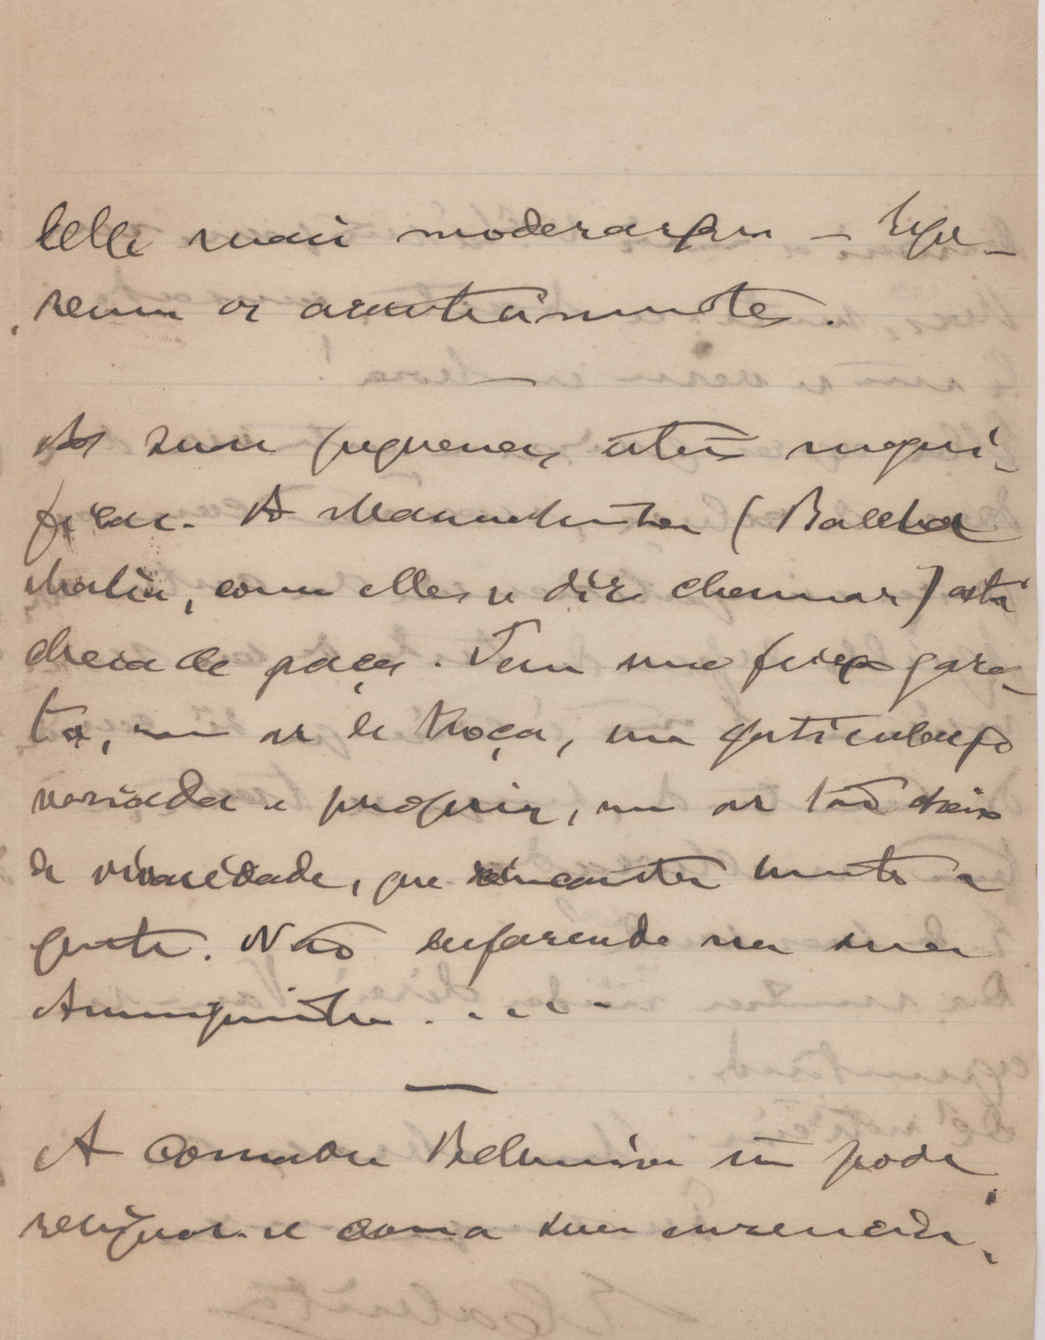 mais moderação —
os acontecimentos.
As suas pequenas, estão magni-
ficas. A Manuelinha (Ballha
Malia, como elles a diz chamar) está
cheia de graça. Tem uma feição garo-
ta, um ar de troça, uma gesticulação
variada e propria, um ar tão cheio
de vivacidade, que encanta muito a
gente. Não na sua
Anninquinha. . . . .
A comadre Belmira não pode
resignar-se com a sua